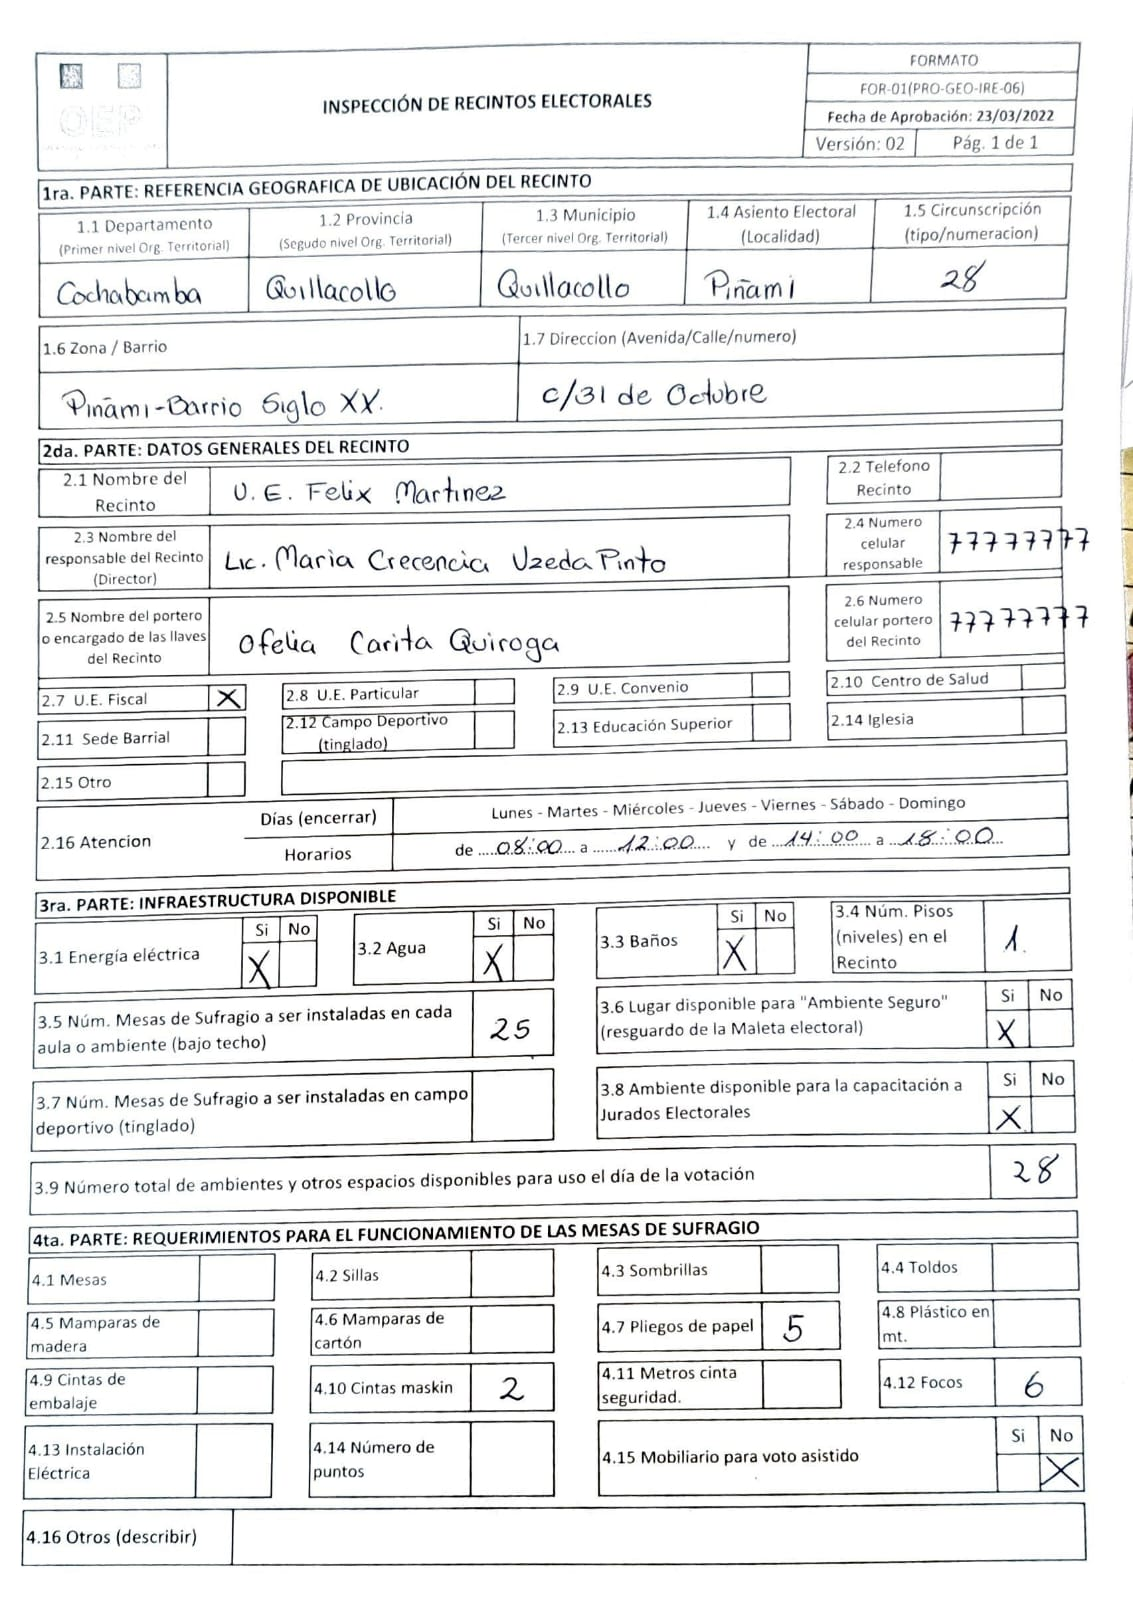 OEP
INSPECCIÓN DE RECINTOS ELECTORALES
FORMATO
FOR-01(PRO-GEO-IRE-06)
Fecha de Aprobación: 23/03/2022
Versión: 02 Pág. 1 de 1
1ra. PARTE: REFERENCIA GEOGRAFICA DE UBICACIÓN DEL RECINTO
1.1 Departamento
(Primer nivel Org. Territorial)
1.2 Provincia
(Segudo nivel Org. Territorial)
1.3 Municipio
(Tercer nivel Org. Territorial)
1.4 Asiento Electoral
(Localidad)
1.5 Circunscripción
(tipo/numeracion)
Cochabamba Quillacollo Quillacollo Piñami 28
1.6 Zona / Barrio
1.7 Direccion (Avenida/Calle/numero)
Piñami-Barrio Siglo XX.
c/31 de Octubre
2da. PARTE: DATOS GENERALES DEL RECINTO
2.1 Nombre del
Recinto
U.E. Felix Martinez
2.2 Telefono
Recinto
2.3 Nombre del
responsable del Recinto
(Director)
Lic. Maria Crecencia Uzeda Pinto
2.4 Numero
celular
responsable
77777777
2.5 Nombre del portero
o encargado de las llaves
del Recinto
Ofelia Carita Quiroga
2.6 Numero
celular portero
del Recinto
77777777
2.7 U.E. Fiscal X 2.8 U.E. Particular 2.9 U.E. Convenio 2.10 Centro de Salud
2.11 Sede Barrial 2.12 Campo Deportivo
(tinglado)
2.13 Educación Superior 2.14 Iglesia
2.15 Otro
2.16 Atencion
Días (encerrar) Lunes - Martes - Miércoles - Jueves - Viernes - Sábado - Domingo
Horarios de .....08:00... a ......12:00.... y de ...14:00... a ..18:00...
3ra. PARTE: INFRAESTRUCTURA DISPONIBLE
3.1 Energía eléctrica Si No
X
3.2 Agua Si No
X
3.3 Baños Si No
X
3.4 Núm. Pisos
(niveles) en el
Recinto
1.
3.5 Núm. Mesas de Sufragio a ser instaladas en cada
aula o ambiente (bajo techo)
25
3.6 Lugar disponible para "Ambiente Seguro"
(resguardo de la Maleta electoral)
Si No
X
3.7 Núm. Mesas de Sufragio a ser instaladas en campo
deportivo (tinglado)
3.8 Ambiente disponible para la capacitación a
Jurados Electorales
Si No
X
3.9 Número total de ambientes y otros espacios disponibles para uso el día de la votación 28
4ta. PARTE: REQUERIMIENTOS PARA EL FUNCIONAMIENTO DE LAS MESAS DE SUFRAGIO
4.1 Mesas 4.2 Sillas 4.3 Sombrillas 4.4 Toldos
4.5 Mamparas de
madera
4.6 Mamparas de
cartón
4.7 Pliegos de papel 5
4.8 Plástico en
mt.
4.9 Cintas de
embalaje
4.10 Cintas maskin 2
4.11 Metros cinta
seguridad.
4.12 Focos 6
4.13 Instalación
Eléctrica
4.14 Número de
puntos
4.15 Mobiliario para voto asistido
Si No
X
4.16 Otros (describir)